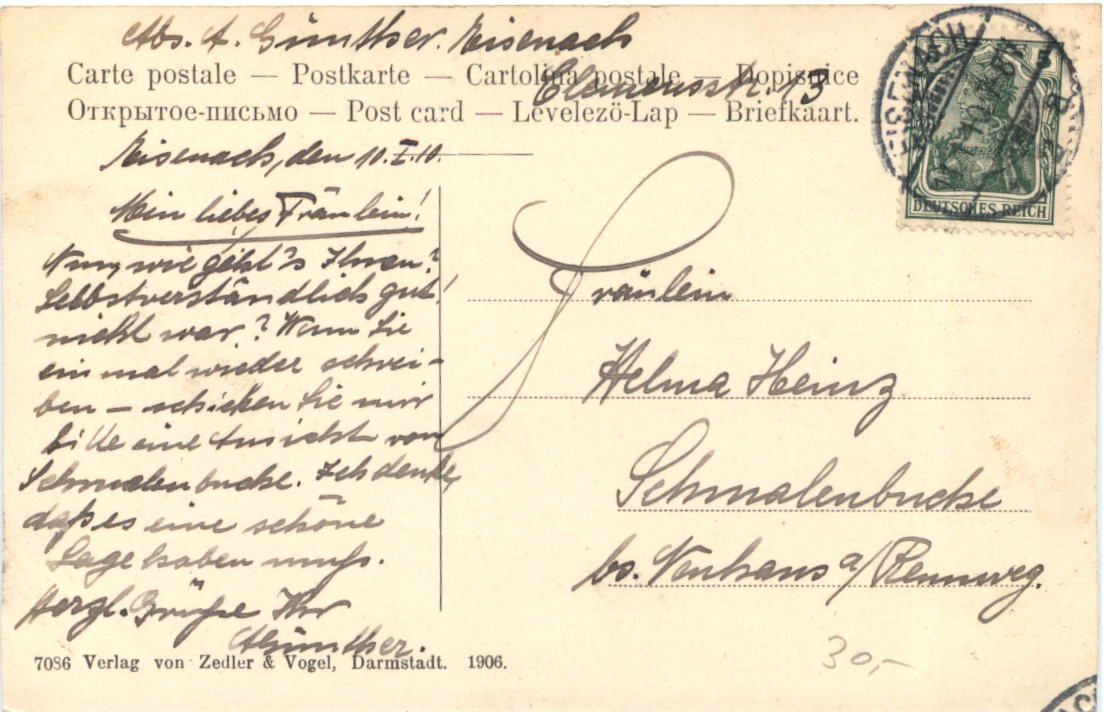 Abs. A. Günther. Eisenach
Clemensstr. 13
Carte postale — Postkarte — Cartolina postale — Dopisnice
Открытое-письмо — Post card — Levelezö-Lap — Briefkaart.
Eisenach, den 10.I.10.
Mein liebes Fräulein!
Nun, wie geht's Ihnen?
Selbstverständlich gut!
nicht war? Wenn Sie
ein mal wieder schrei-
ben — schicken Sie mir
bitte eine Ansicht von
Schmalenbuche. Ich denke,
daß es eine schöne
Lage haben muß.
Herzl. Grüße Ihr
AGünther.
7086 Verlag von Zedler & Vogel, Darmstadt. 1906.
EISENACH
DEUTSCHES REICH
Fräulein
Helma Heinz
Schmalenbuche
bs. Neuhaus a/Rennweg.
30,-